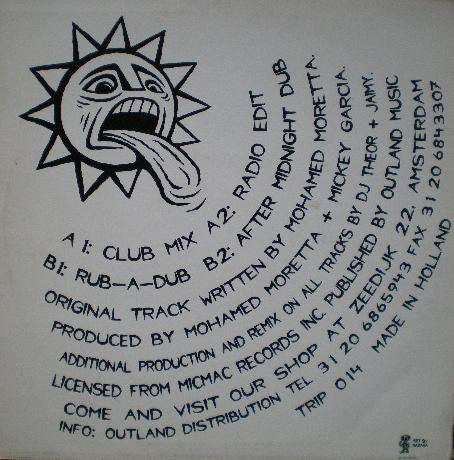 A1: CLUB MIX A2: RADIO EDIT
B1: RUB-A-DUB B2: AFTER MIDNIGHT DUB
ORIGINAL TRACK WRITTEN BY MOHAMED MORETTA.
PRODUCED BY MOHAMED MORETTA + MICKEY GARCIA.
ADDITIONAL PRODUCTION AND REMIX ON ALL TRACKS BY DJ THEOR + JAIMY.
LICENSED FROM MICMAC RECORDS INC. PUBLISHED BY OUTLAND MUSIC
COME AND VISIT OUR SHOP AT ZEEDIJK 22, AMSTERDAM
INFO: OUTLAND DISTRIBUTION TEL 31 20 6865943 FAX 31 20 6843307
TRIP 014 MADE IN HOLLAND